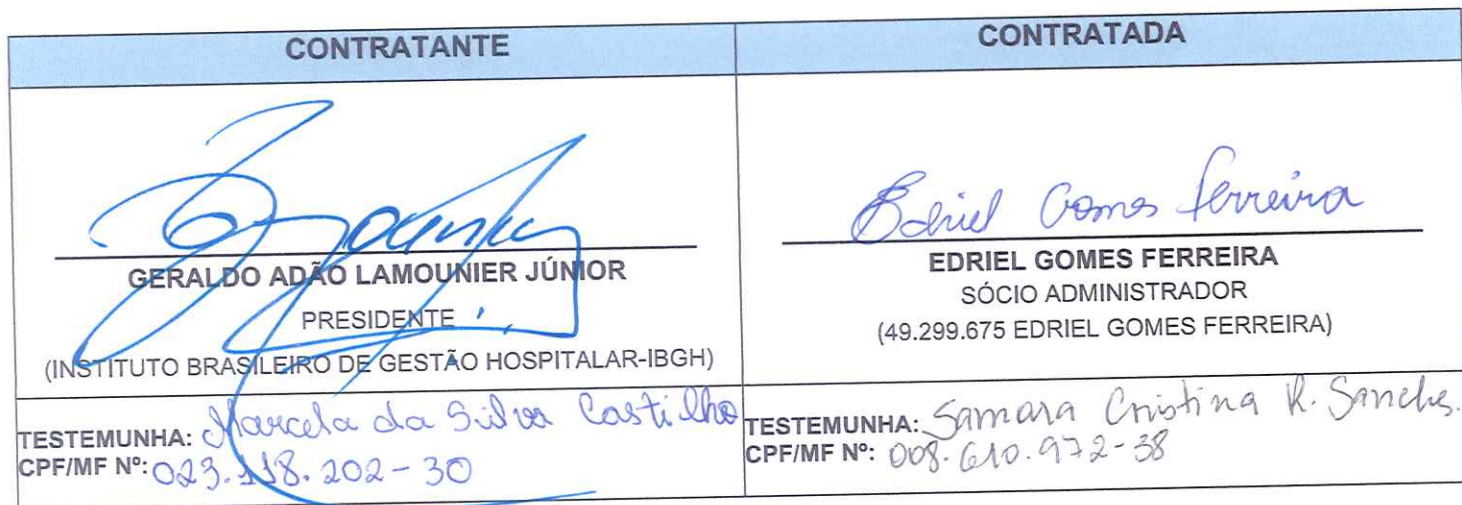 CONTRATANTE
CONTRATADA
GERALDO ADÃO LAMOUNIER JÚNIOR
PRESIDENTE
(INSTITUTO BRASILEIRO DE GESTÃO HOSPITALAR-IBGH)
Edriel Gomes Ferreira
EDRIEL GOMES FERREIRA
SÓCIO ADMINISTRADOR
(49.299.675 EDRIEL GOMES FERREIRA)
TESTEMUNHA: Marcela da Silva Castilho
CPF/MF Nº: 023.118.202-30
TESTEMUNHA: Samara Cristina R. Sanches.
CPF/MF Nº: 008.610.972-38